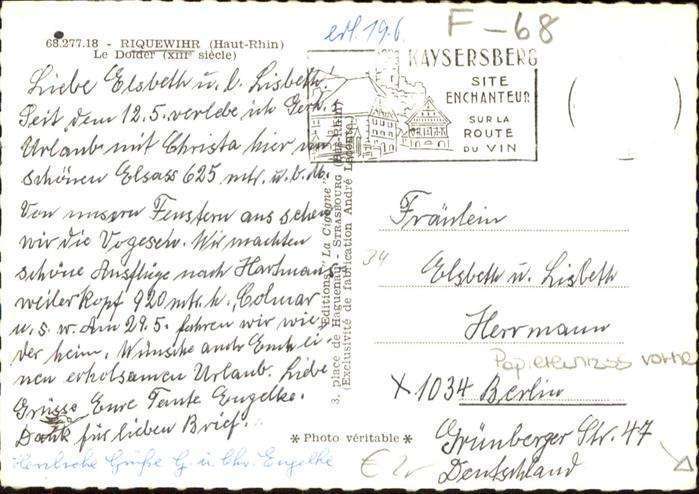 erl. 19.6.
F - 68
68.277.18 - RIQUEWIHR (Haut-Rhin)
Le Dolder (XIIIe siècle)
Liebe Elsbeth u. l. Lisbeth!
Seit dem 12.5. verlebe ich Gerh.
Urlaub mit Christa hier im
schönen Elsass 625 mtr. ü.d.M.
Von unsern Fenstern aus sehen
wir die Vogesen. Wir machten
schöne Ausflüge nach Hartmanns
weilerkopf 920 mtr. h., Colmar
u. s. w. Am 29.5. fahren wir wie
der heim. Wünsche auch Euch ei
nen erholsamen Urlaub. Liebe
Grüsse Eure Tante Engelke.
Dank für lieben Brief.
Herzliche Grüße G. u. Chr. Engelke
Editions "La Cigogne"
3, place de Haguenau - STRASBOURG (Bas-Rhin)
(Exclusivité de fabrication André Leconte)
* Photo véritable *
KAYSERSBERG
SITE
ENCHANTEUR
SUR LA
ROUTE
DU VIN
Fräulein
34
Elsbeth u. Lisbeth
Herrmann
vorne
X 1034 Berlin
Grünberger Str. 47
Deutschland
€ 2,-